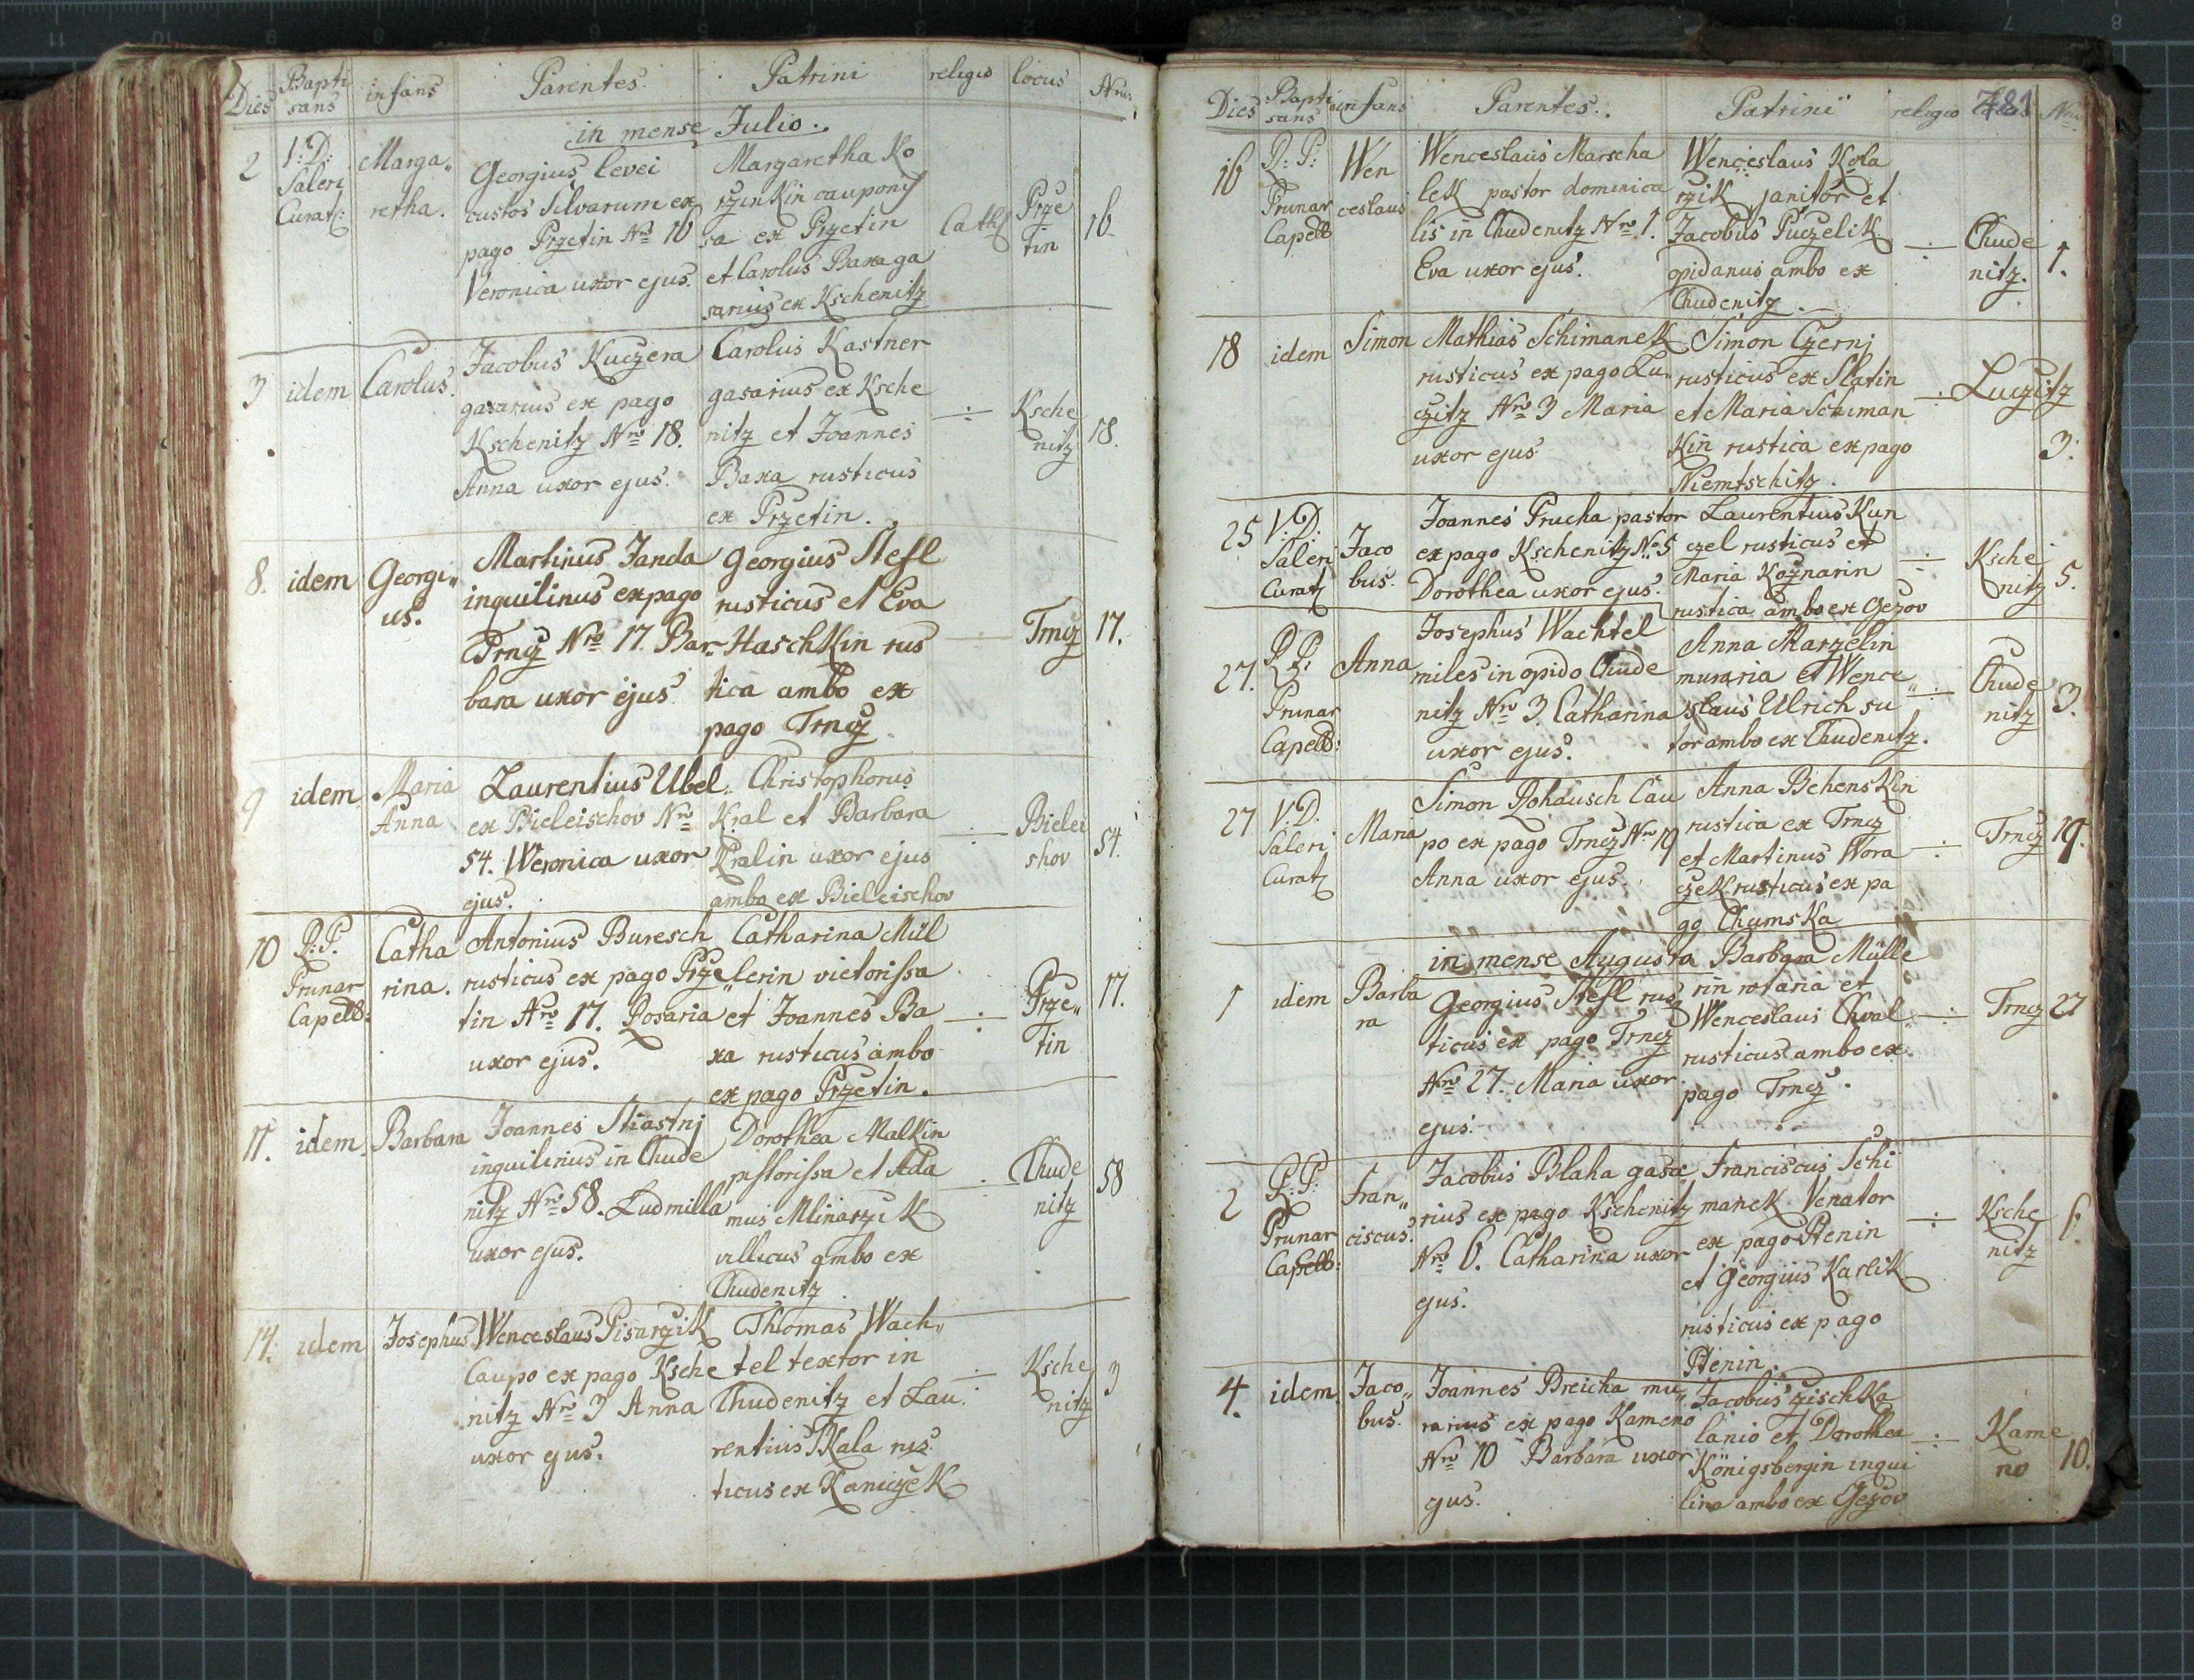 Dies Baptisans infans Parentes. Patrini religio locus Nrus
in mense Julio.
2 V: D: Saleri Curat: Marga„ retha.
Georgius Levei
custos Silvarum ex
pago Przetin Nro 16
Veronica uxor ejus.
Margaretha Ko
rzinkin caupony
sa ex Przetin
et Carolus Baxa ga
sarius ex Kschenitz
Cath
Prze
tin
16
3 idem Carolus.
Jacobus Kuczera
gasarius ex pago
Kschenitz Nro 18.
Anna uxor ejus.
Carolus Kastner
gasarius ex Ksche
nitz et Joannes
Baxa rusticus
ex Przetin.
Ksche
nitz
18.
8. idem Georgi„ us.
Martinus Janda
inquilinus ex pago
Trncz Nro 17. Bar-
bara uxor ejus
Georgius Stefl
rusticus et Eva
Haschkin rus
tica ambo ex
pago Trncz
Trncz
17.
9 idem Maria Anna
Laurentius Ubel
ex Bieleischov Nro
54. Weronica uxor
ejus.
Christophorus
Kral et Barbara
Kralin uxor ejus
ambo ex Bieleischov
Bielei
shov
54.
10 P: P. Prunar Capell: Catha rina.
Antonius Buresch
rusticus ex pago Prze„
tin Nro 17. Rosaria
uxor ejus.
Catharina Mül
lerin victorissa
et Joannes Ba
xa rusticus ambo
ex pago Przetin.
Prze„
tin
17.
11. idem Barbara
Joannes Stiastnj
inquilinus in Chude
nitz Nro 58. Ludmilla
uxor ejus.
Dorothea Malkin
pistorissa et Ada
mus Mlinarzik
villicus ambo ex
Chudenitz.
Chude
nitz
58
14. idem Josephus
Wenceslaus Pisarzik
Caupo ex pago Ksche
nitz Nro 3 Anna
uxor ejus.
Thomas Wach„
tel textor in
Chudenitz et Lau
rentius Skala rus
ticus ex Kaniczek
Ksche
nitz
3
781
Dies Baptisans infans Parentes. Patrini religio locus Nru
16 P: P: Prunar Capell Wen ceslaus
Wenceslaus Marscha
lek pastor dominica
lis in Chudenitz Nro 1.
Eva uxor ejus.
Wenceslaus Kola
rzik janitor et
Jacobus Puczelik
opidanus ambo ex
Chudenitz.
Chude
nitz.
1.
18 idem Simon
Mathias Schimanek
rusticus ex pago Lu„
czitz Nro 3 Maria
uxor ejus
Simon Czernj
rusticus ex Slatin
et Maria Schiman
kin rustica ex pago
Niemtschitz.
Luczitz
3.
25 V: D: Saleri Curat Jaco bus.
Joannes Prucha pastor
ex pago Kschenitz No 5
Dorothea uxor ejus.
Laurentius Kun
czel rusticus et
Maria Koznarin
rustica ambo ex Gezov
Ksche
nitz
5.
27. P. P. Prunar Capell: Anna
Josephus Wachtel
miles in opido Chude
nitz Nro 3. Catharina
uxor ejus.
Anna Marzelin
muraria et Wence„
slaus Ulrich su
tor ambo ex Chudenitz.
Chude
nitz
3.
27 V: D. Saleri Curat Maria
Simon Rohausch Cau
po ex pago Trncz Nro 19
Anna uxor ejus.
Anna Behenskin
rustica ex Trncz
et Martinus Wora
czek rusticus ex pa
go Chumska
Trncz
19.
in mense Augusta
1 idem Barba ra
Georgius Stefl rus
ticus ex pago Trncz
Nro 27. Maria uxor
ejus.
Barbara Mülle
rin rotaria et
Wenceslaus Chval
rusticus ambo ex
pago Trncz.
Trncz
27
2 P: P: Prunar Capell: Fran„ ciscus.
Jacobus Blaha gasa
rius ex pago Kschenitz
Nro 6. Catharina uxor
ejus.
Franciscus Schi
manek Venator
ex pago Ptenin
et Georgius Karlik
rusticus ex pago
Ptenin.
Ksche
nitz
6.
4. idem Jaco„ bus.
Joannes Breicha mu„
rarius ex pago Kameno
Nro 10 Barbara uxor
ejus.
Jacobus Zischka
lanio et Dorothea
Königsbergin inqui
lina ambo ex Gezov
Kame
no
10.